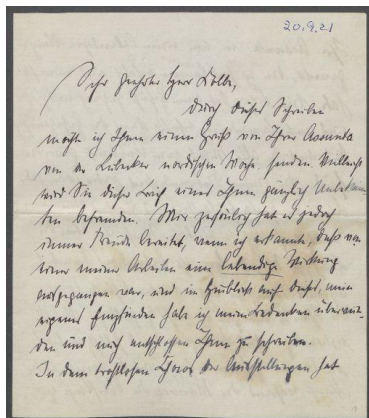 20.9.21
Sehr geehrter Herr Kolbe,
durch dieses Schreiben
möchte ich Ihnen einen Gruß von Ihrer Assunta
von der Lübecker nordischen Woche senden. Vielleicht
wird Sie dieser Brief eines Ihnen gänzlich Unbekann
ten befremden. Mir persönlich hat es jedoch
immer Freude bereitet, wenn ich erkannte, daß von
einer meiner Arbeiten eine lebendige Wirkung
ausgegangen war, und im Hinblick auf dieses, mein
eigenes Empfinden habe ich meine Bedenken überwun-
den und mich entschlossen Ihnen zu schreiben.
In dem trostlosen Chaos der Ausstellungen hat